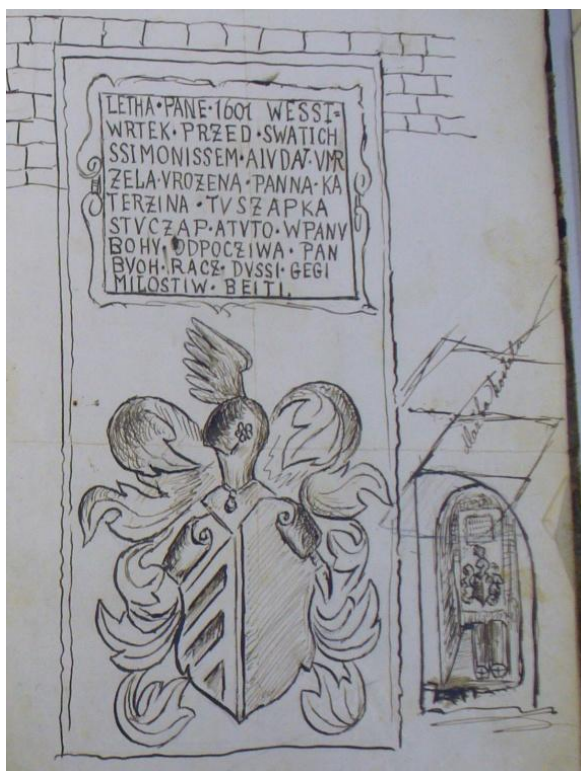 LETHA·PANE·1601 WESST=
WRTEK·PRZED·SWATICH
SSIMONISSEM·AIVDAT·VMR
ZELA·VROZENA·PANNA·KA
TERZINA·TVSZAPKA
STVCZAP·ATVTO·WPANV
BOHV·ODPOCZIWA·PAN
BVOH·RACZ·DVSSI·GEGI
MILOSTIW·BEITI.